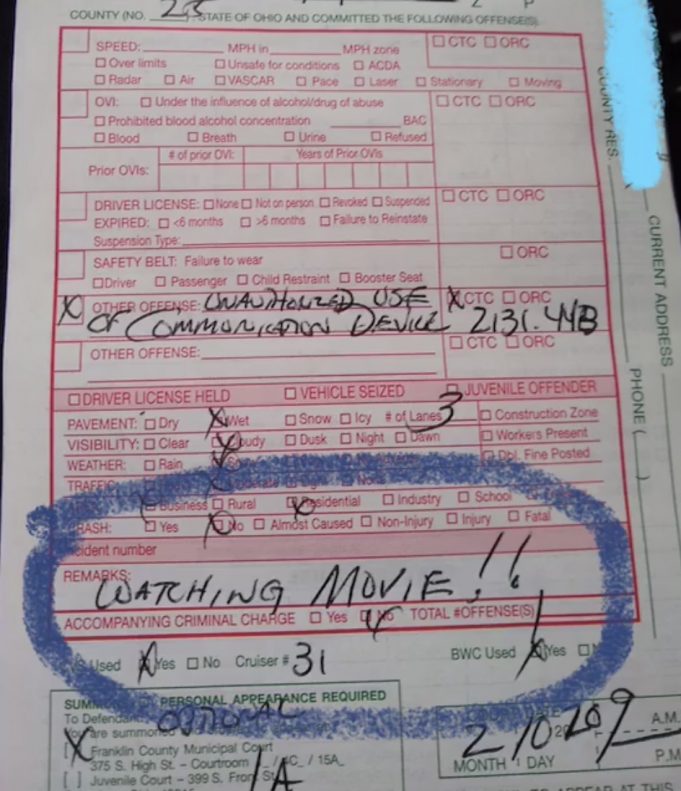 COUNTY (NO. 25 STATE OF OHIO AND COMMITTED THE FOLLOWING OFFENSE(S).
SPEED: MPH in MPH zone ☐ CTC ☐ ORC
☐ Over limits ☐ Unsafe for conditions ☐ ACDA
☐ Radar ☐ Air ☐ VASCAR ☐ Pace ☐ Laser ☐ Stationary ☐ Moving
OVI: ☐ Under the influence of alcohol/drug of abuse ☐ CTC ☐ ORC
☐ Prohibited blood alcohol concentration BAC
☐ Blood ☐ Breath ☐ Urine ☐ Refused
# of prior OVI: Years of Prior OVIs
Prior OVIs:
DRIVER LICENSE: ☐ None ☐ Not on person ☐ Revoked ☐ Suspended ☐ CTC ☐ ORC
EXPIRED: ☐ <6 months ☐ >6 months ☐ Failure to Reinstate
Suspension Type:
SAFETY BELT: Failure to wear ☐ ORC
☐ Driver ☐ Passenger ☐ Child Restraint ☐ Booster Seat
X OTHER OFFENSE: UNAUTHORIZED USE X CTC ☐ ORC
OF COMMUNICATION DEVICE 2131.44B
OTHER OFFENSE: ☐ CTC ☐ ORC
☐ DRIVER LICENSE HELD ☐ VEHICLE SEIZED ☐ JUVENILE OFFENDER
PAVEMENT: ☐ Dry X Wet ☐ Snow ☐ Icy # of Lanes 3 ☐ Construction Zone
VISIBILITY: ☐ Clear X Cloudy ☐ Dusk ☐ Night ☐ Dawn ☐ Workers Present
WEATHER: ☐ Rain ☐ Dbl. Fine Posted
TRAFFIC
Business ☐ Rural X Residential ☐ Industry ☐ School
CRASH: ☐ Yes X No ☐ Almost Caused ☐ Non-Injury ☐ Injury ☐ Fatal
cident number
REMARKS: WATCHING MOVIE!!
ACCOMPANYING CRIMINAL CHARGE ☐ Yes X No TOTAL #OFFENSE(S) 1
Used X Yes ☐ No Cruiser # 31 BWC Used X Yes ☐
SUMM PERSONAL APPEARANCE REQUIRED
To Defendan OPTIONAL
You are summoned
X [ ] Franklin County Municipal Court
375 S. High St. - Courtroom 1A / C / 15A
[ ] Juvenile Court - 399 S. Front St.
2 10 20 9 A.M.
MONTH DAY P.M.
COUNTY RES.
CURRENT ADDRESS
PHONE (